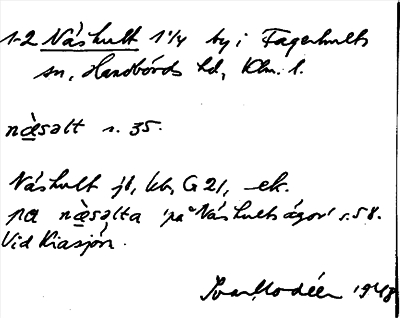 1-2 Näshult 1 1/4 by i Fagerhults
sn, Handbörds hd, Klm. l.
nä̀səlt s. 35.
Näshult jb, kb, G 21, ek.
pɑ nä̀səlta 'på Näshults ägor' s. 58.
Vid Kiasjön.
Ivar Modéer 1948